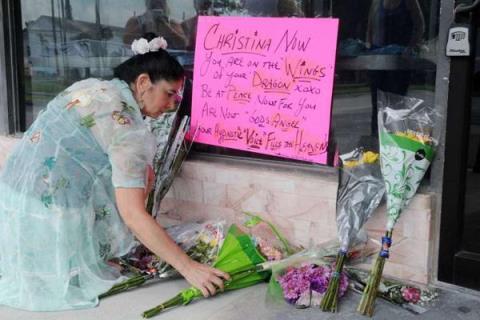 CHRISTINA NOW
YOU ARE ON THE "WINGS"
OF YOUR "DRAGON" XOXO
BE AT "PEACE" NOW FOR YOU
ARE NOW "GOD'S ANGEL"
YOUR HYPNOTIC "VOICE" FILLS THE HEAVEN!